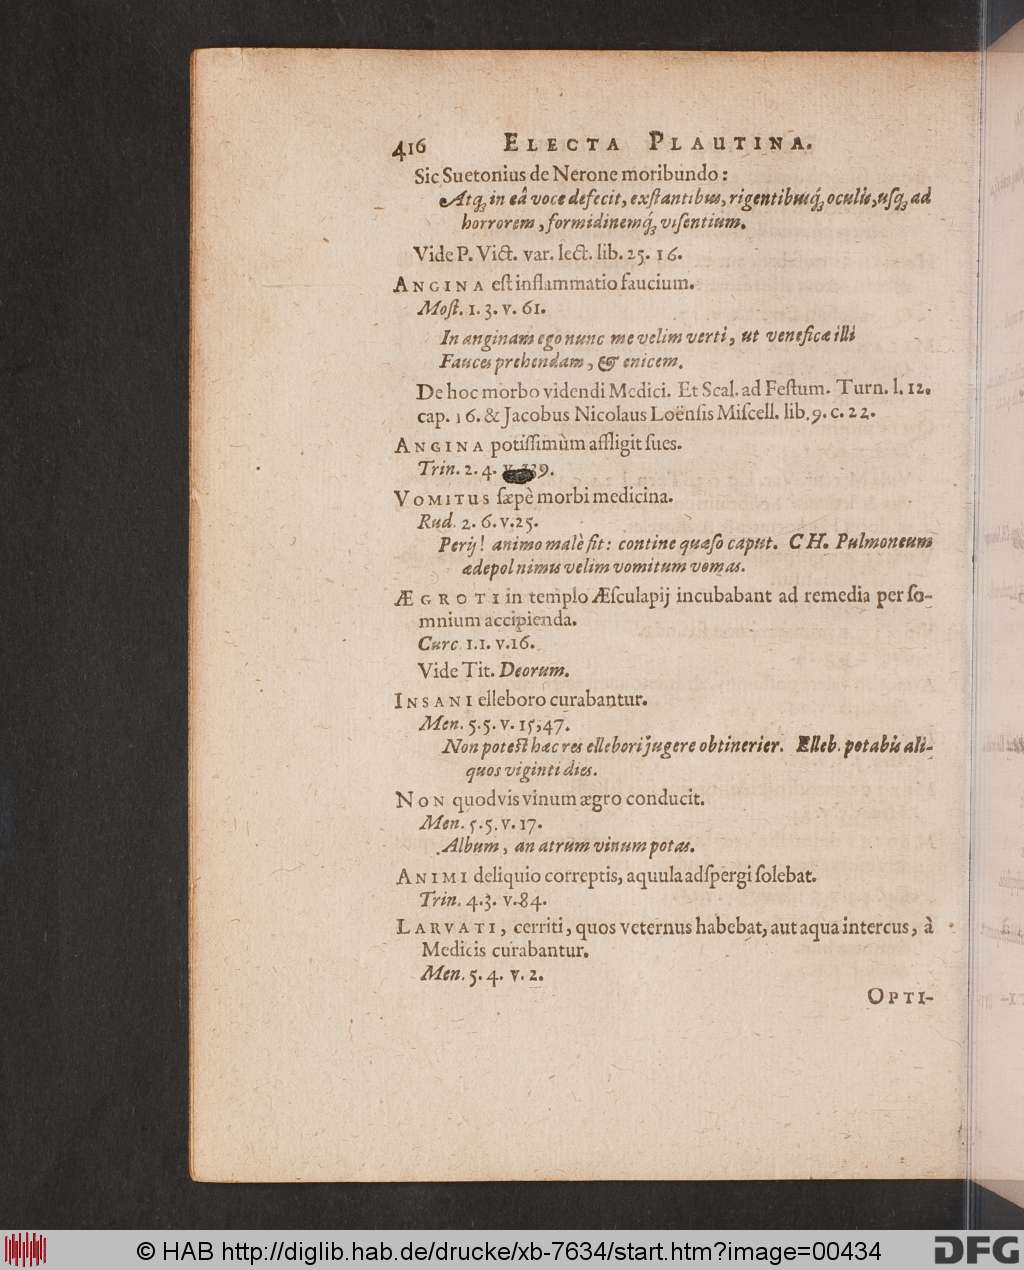 416 ELECTA PLAUTINA.
Sic Suetonius de Nerone moribundo:
Atq́; in eâ voce defecit, exſtantibus, rigentibusq́; oculis, uſq́; ad
horrorem, formidinemq́; viſentium.
Vide P. Vict. var. lect. lib. 25. 16.
ANGINA eſt inflammatio faucium.
Moſt. 1. 3. v. 61.
In anginam ego nunc me velim verti, ut veneficæ illi
Fauces prehendam, & enicem.
De hoc morbo videndi Medici. Et Scal. ad Feſtum. Turn. l. 12.
cap. 16. & Jacobus Nicolaus Loënſis Miſcell. lib. 9. c. 22.
ANGINA potiſſimùm affligit ſues.
Trin. 2. 4. v. 139.
VOMITUS ſæpè morbi medicina.
Rud. 2. 6. v. 25.
Perij! animo malè fit: contine quæſo caput. CH. Pulmoneum
ædepol nimis velim vomitum vomas.
ÆGROTI in templo Æſculapij incubabant ad remedia per ſo-
mnium accipienda.
Curc. 1. 1. v. 16.
Vide Tit. Deorum.
INSANI elleboro curabantur.
Men. 5. 5. v. 15, 47.
Non poteſt hæc res ellebori jugere obtinerier. Elleb. potabis ali-
quos viginti dies.
NON quodvis vinum ægro conducit.
Men. 5. 5. v. 17.
Album, an atrum vinum potas.
ANIMI deliquio correptis, aquula adſpergi ſolebat.
Trin. 4. 3. v. 84.
LARVATI, cerriti, quos veternus habebat, aut aqua intercus, à
Medicis curabantur.
Men. 5. 4. v. 2.
OPTI-
© HAB http://diglib.hab.de/drucke/xb-7634/start.htm?image=00434
DFG